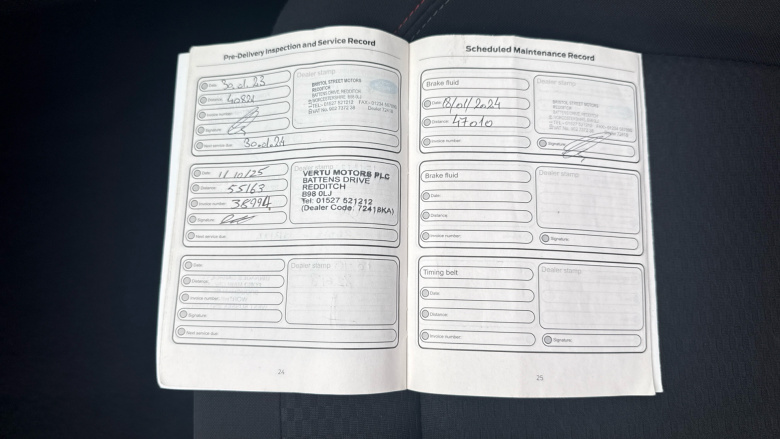 Pre-Delivery Inspection and Service Record
Date: 30.01.23
Distance:
Invoice number:
Signature:
Next service due: 30.01.24
Dealer stamp
BRISTOL STREET MOTORS
REDDITCH
BATTENS DRIVE, REDDITCH
Date: 11/10/25
Distance: 55163
Invoice number: 38994
Signature:
Next service due:
Dealer stamp
VERTU MOTORS PLC
BATTENS DRIVE
REDDITCH
B98 0LJ
Tel: 01527 521212
(Dealer Code: 72418KA)
Date:
Distance:
Invoice number:
Signature:
Next service due:
Dealer stamp
24
Scheduled Maintenance Record
Brake fluid
Date: 18/01/2024
Distance: 47010
Invoice number:
Dealer stamp
BRISTOL STREET MOTORS
REDDITCH
Signature:
Brake fluid
Date:
Distance:
Invoice number:
Dealer stamp
Signature:
Timing belt
Date:
Distance:
Invoice number:
Dealer stamp
Signature:
25